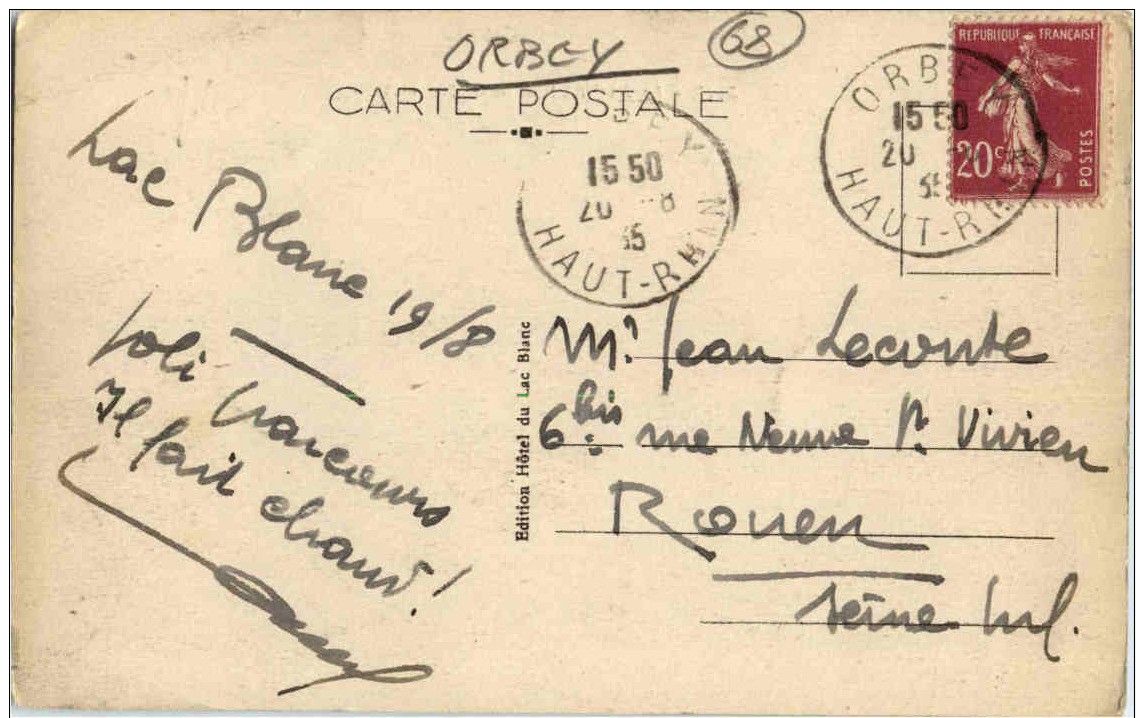 ORBEY
68
CARTE POSTALE
Lac Blanc 19/8
Joli
Il fait chaud!
15 50
20 -8
35
HAUT-RHIN
ORBEY
15 50
20
35
HAUT-RHIN
REPUBLIQUE FRANÇAISE
20c
POSTES
Edition Hôtel du Lac Blanc
Mr Jean Leconte
6 bis rue Neuve St Vivien
Rouen
Seine Inf.